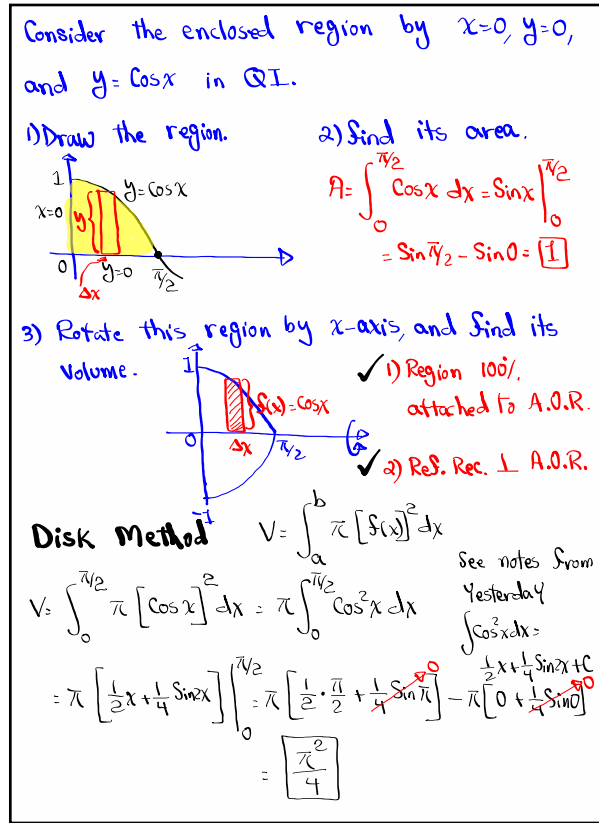 Consider the enclosed region by x=0, y=0,
and y=Cosx in QI.
1) Draw the region.
1
y=Cosx
x=0
y
0
y=0
π/2
Δx
2) find its area.
A = ∫₀^(π/2) Cosx dx = Sinx |₀^(π/2)
= Sin π/2 - Sin 0 = 1
3) Rotate this region by x-axis, and find its
Volume.
1
f(x)=Cosx
0
Δx
π/2
-1
✓ 1) Region 100%
attached to A.O.R.
✓ 2) Ref. Rec. ⊥ A.O.R.
Disk Method
V= ∫ₐᵇ π [f(x)]² dx
V= ∫₀^(π/2) π [Cosx]² dx = π ∫₀^(π/2) Cos²x dx
See notes from
Yesterday
∫Cos²x dx =
1/2 x + 1/4 Sin2x + C
= π [1/2 x + 1/4 Sin2x] |₀^(π/2) = π [1/2 · π/2 + 1/4 Sin π] - π [0 + 1/4 Sin0]
0
0
= π²/4